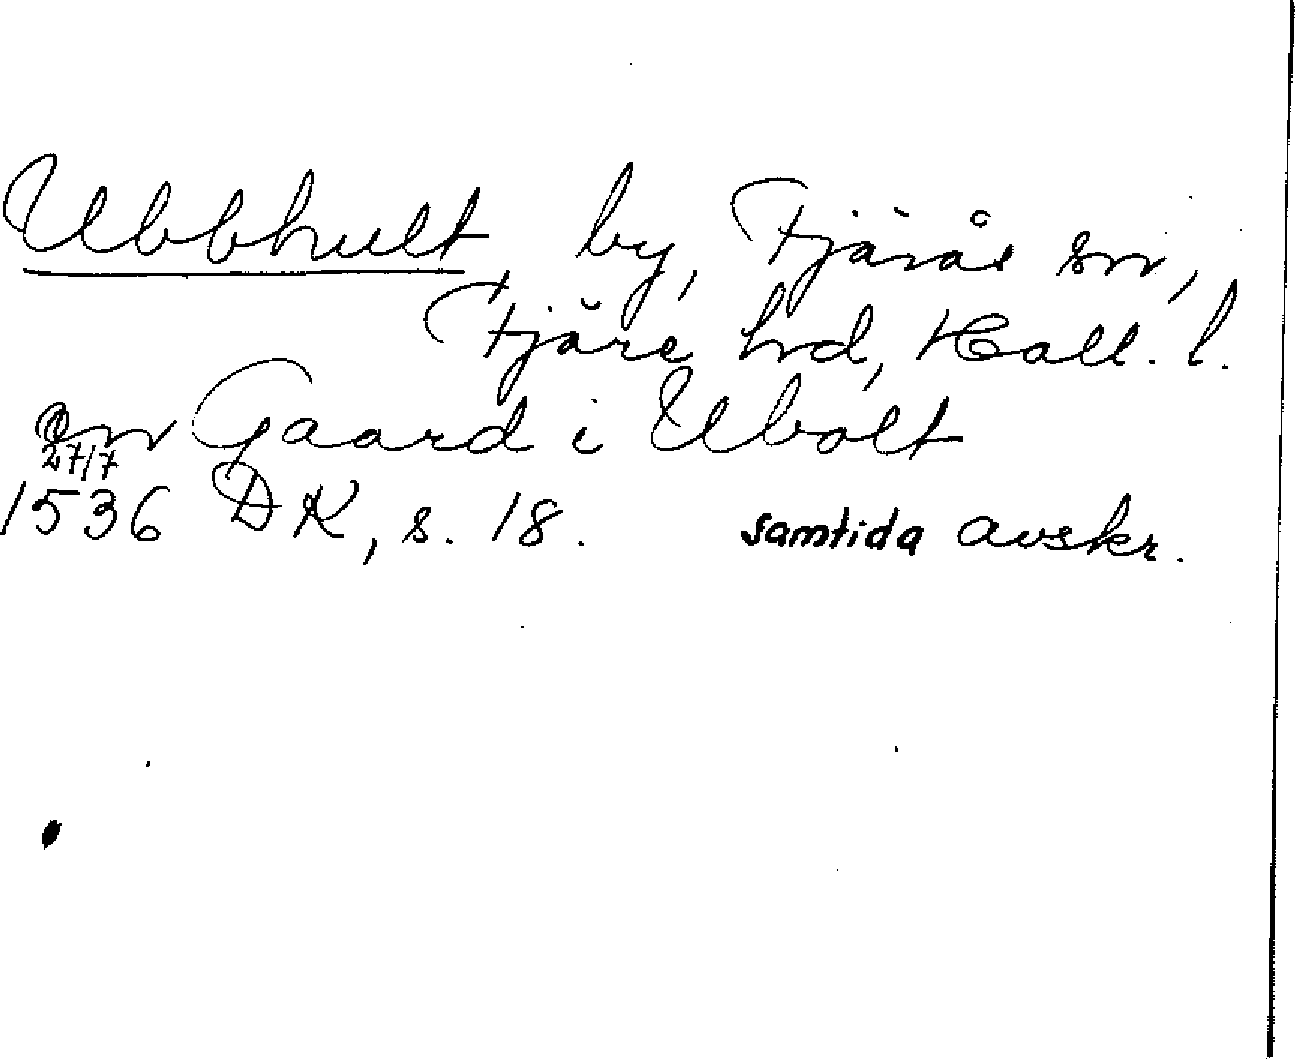 Ubbhult by, Fjärås sn,
Fjäre hrd, Hall. l.
en Gaard i Ubolt
27/7
1536 DK, s. 18. samtida avskr.